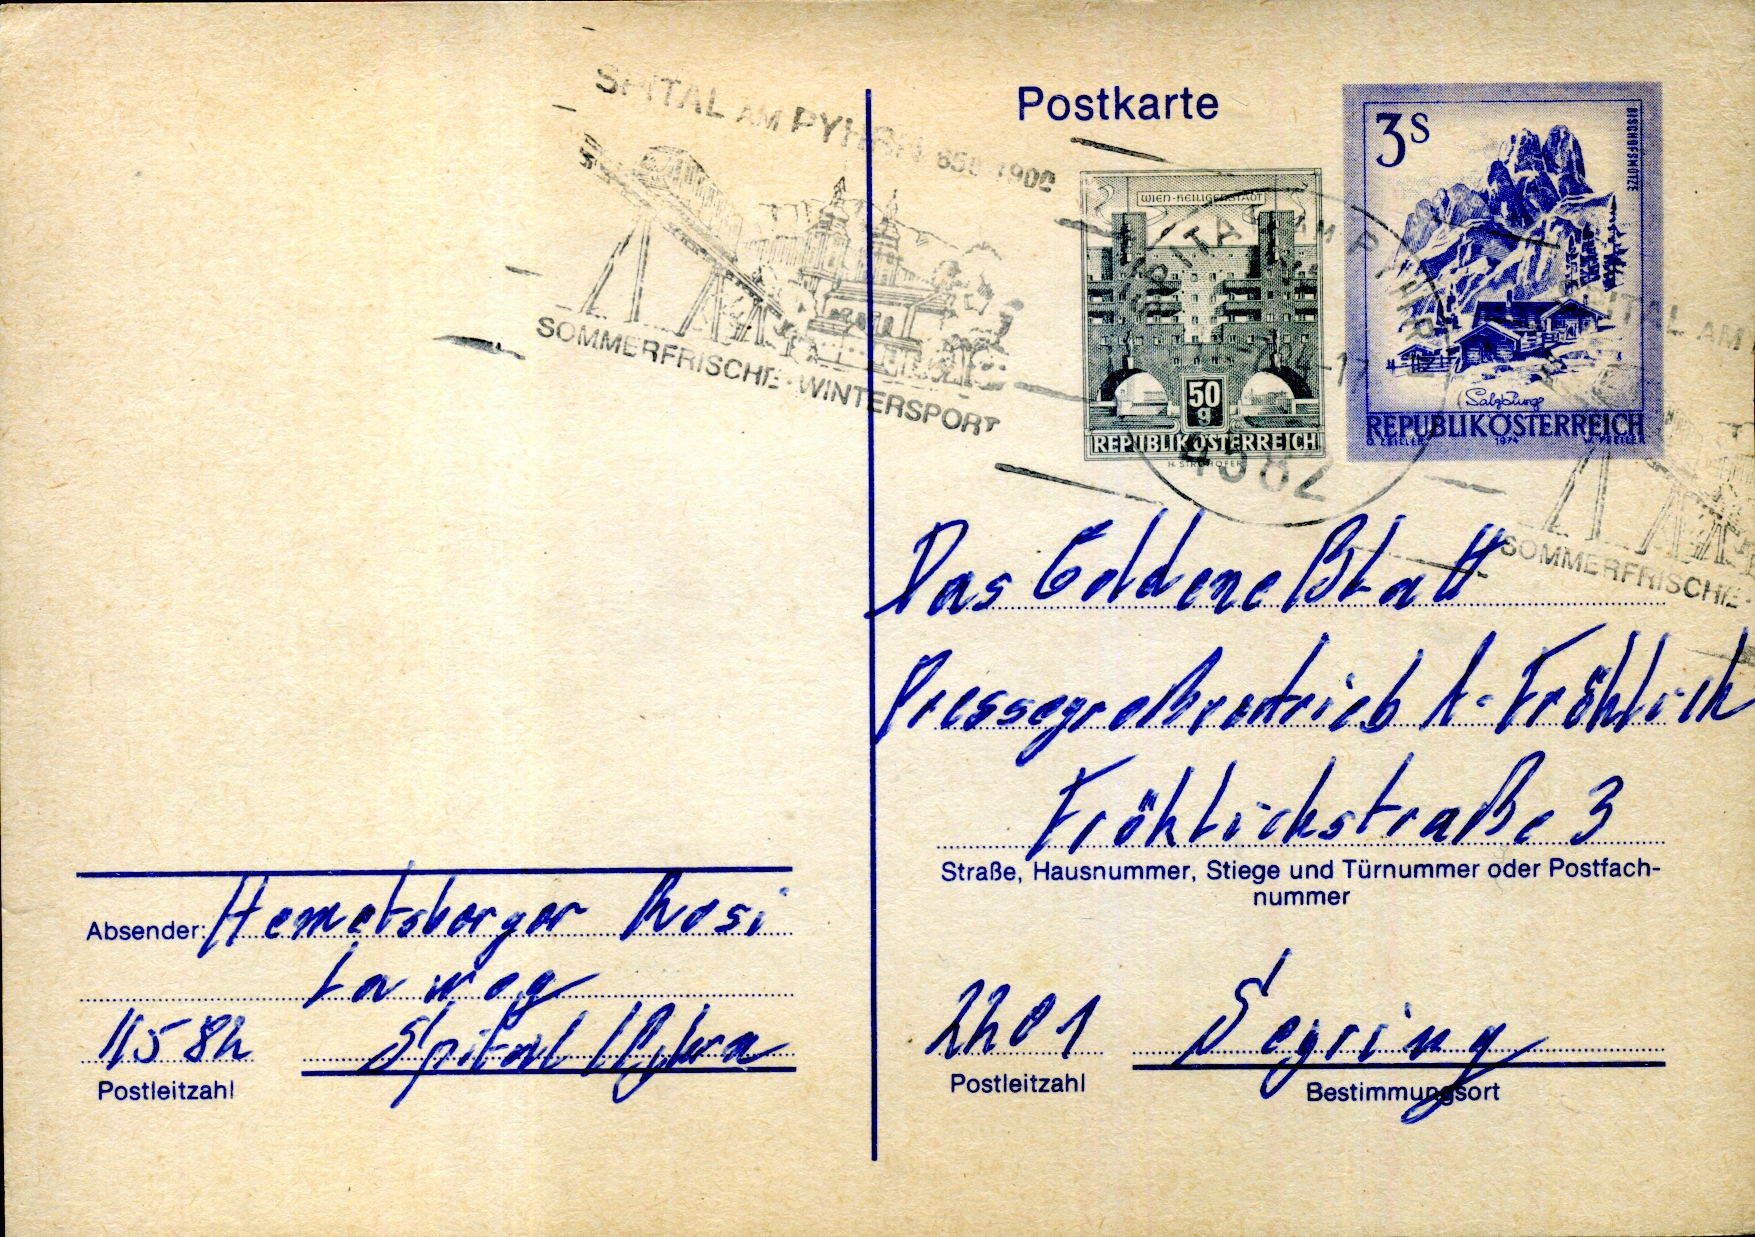 SPITAL AM PYHRN 650-1900
SOMMERFRISCHE-WINTERSPORT
Postkarte
WIEN-HEILIGENSTADT
50 g
REPUBLIK ÖSTERREICH
3 S
BISCHOFSMÜTZE
Salzburg
REPUBLIK ÖSTERREICH
1974
SPITAL AM PYHRN
-17
4582
SPITAL AM
SOMMERFRISCHE-
Das Goldene Blatt
Pressegroßvertrieb A. Fröhlich
Fröhlichstraße 3
Straße, Hausnummer, Stiege und Türnummer oder Postfach-
nummer
2201 Segring
Postleitzahl Bestimmungsort
Absender: Hemetsberger Rosi
Laweg
4582 Spital
Postleitzahl